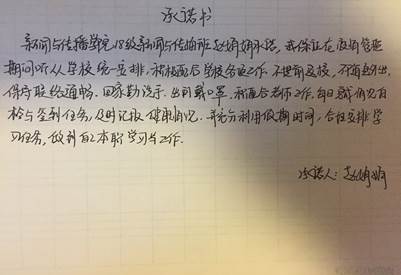 承诺书
新闻与传播学院18级新闻与传播班赵娟娟承诺，我保证在疫情管控
期间听从学校统一安排，积极配合学校各项工作，不提前返校，不随意外出，
保持联络通畅。回家勤洗手、出门戴口罩，积极配合老师工作，每日完成
检与签到任务，及时汇报健康情况。并充分利用假期时间，合理安排学
习任务，做到自己本职学习与工作。
承诺人：赵娟娟